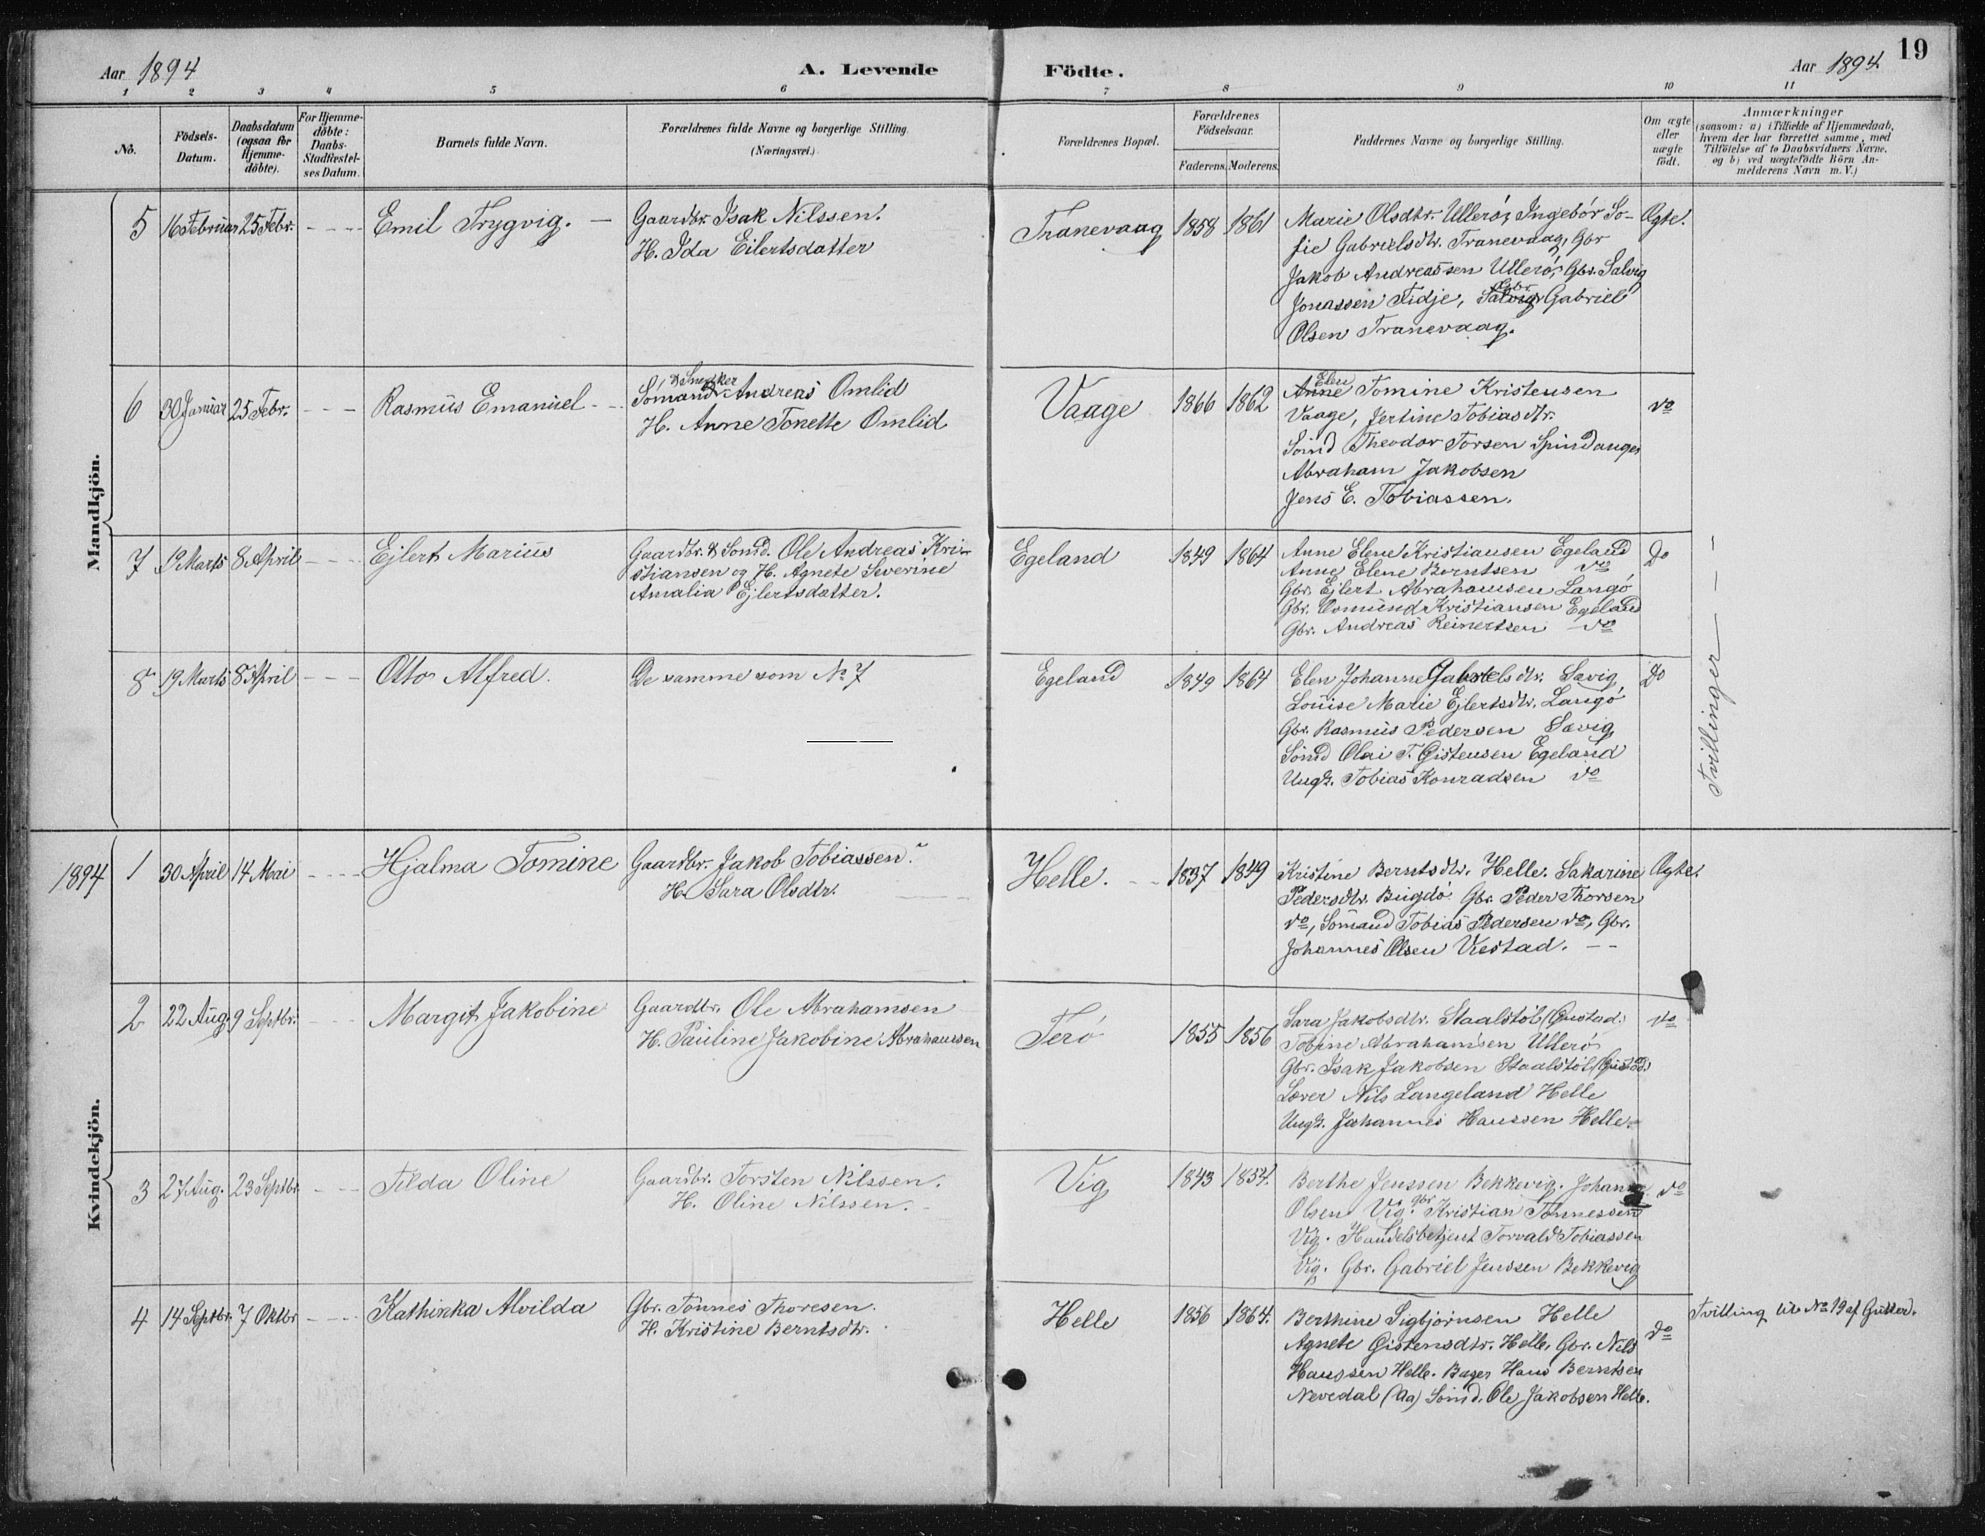 Aar 1894 A. Levende Födte. Aar 1894. 19
1 2 3 4 5 6 7 8 9 10 11
No. Födsels-Datum. Daabsdatum (ogsaa for Hjemme-döbte). For Hjemme-döbte: Daabs-Stadfæstel-ses Datum. Barnets fulde Navn. Forældrenes fulde Navne og borgerlige Stilling. (Næringsvei.) Forældrenes Bopæl. Forældrenes Födselsaar. Faderens. Moderens. Faddernes Navne og borgerlige Stilling. Om ægte eller uægte födt. Anmærkninger (saasom: a) i Tilfælde af Hjemmedaab, hvem der har forrettet samme, med Tilföielse af to Daabsvidners Navne, og b) ved uægtefödte Börn An-melderens Navn m. V.)
Mandkjön.
5 16 Februar 25 Febr. - - - Emil Trygvig. - Gaardbr. Isak Nilssen.
H. Ida Eilertsdatter
Tranevaag 1858 1861 Marie Olsdtr. Ullerö, Ingebór So-
fie Gabrielsdtr. Tranevaag, Gbr
Jakob Andreassen Ullerö, Gbr. Salvig
Jonassen Fidje, Gbr Gabriel
Olsen Tranevaag.
Ægte.
6 30 Januar 25 Febr. - - - Rasmus Emanuel - - Sömand & Snedker Andreas Omlid
H. Anne Tonette Omlid
Vaage 1866 1862 Anne Elen Tomine Kristensen
Vaage, Jertine Tobiasdtr.
Sömd Theodor Torsen Spindanger
Abraham Jakobsen
Jens E. Tobiassen.
do
7 19 Marts 8 April - - - Ejlert Marius Gaardbr. & Sömd. Ole Andreas Kri-
stiansen og H. Agnete Severine
Amalia Ejlertsdatter.
Egeland 1849 1864 Anne Elene Kristiansen Egeland
Anne Elene Berntsen do
Gbr. Ejlert Abrahamsen Langö
Gbr. Osmund Kristiansen Egeland
Gbr. Andreas Reinertsen do
Do
8 19 Marts 8 April - - - Otto Alfred. De samme som No 7
Egeland 1849 1864 Elen Johanne Gabrielsdtr. Sævig
Louise Marie Ejlertsdtr. Langö
Gbr. Rasmus Pedersen Sævig
Sömd Olai T. Gistensen Egeland
Ungk. Tobias Konradsen do
Do
Tvillinger - - -
Kvindekjön.
1894 1 30 April 14 Mai - - - Hjalma Tomine Gaardbr. Jakob Tobiassen.
H. Sara Olsdtr.
Helle. - - 1837 1849 Kristine Berntsdtr. Helle. Sakarine
Pedersdtr. Bugdö Gbr. Peder Thorsen
do, Sömand Tobias Pedersen do, Gbr.
Johannes Olsen Viestad. - -
Ægte.
2 22 Aug. 9 Septbr. - - - Margit Jakobine Gaardbr. Ole Abrahamsen
H. Pauline Jakobine Abrahamsen
Terö 1855 1856 Sara Jakobsdtr. Staalstöl
Tobine Abrahamsen Ullerö
Gbr. Isak Jakobsen Staalstöl
Lærer Nils Langeland Helle
Ungk. Johannes Hanssen Helle.
do
3 27 Aug. 23 Septbr. - - - Tilda Oline Gaardbr. Torsten Nilssen.
H. Oline Nilssen. -
Vig 1843 1854. Berthe Jenssen Bekkevig. Johanne
Olsen Vig. gbr Kristian Tönnessen
Vig. Handelsbetjent Torvald Tobiassen
Vig. Gbr. Gabriel Jenssen Bekkevig
do
4 14 Septbr. 7 Oktbr - - - Kathinka Alvilda Gbr. Tönnes Thoresen.
H. Kristine Berntsdtr.
Helle 1856 1864. Berthine Sigbjörnsen Helle
Agnete Gistensdtr. Helle, Gbr. Nils
Hanssen Helle. Bager Hans Berntsen
Nevedal (Aa) Sömd. Ole Jakobsen Helle.
do
Tvilling til No 19 af Gutter.